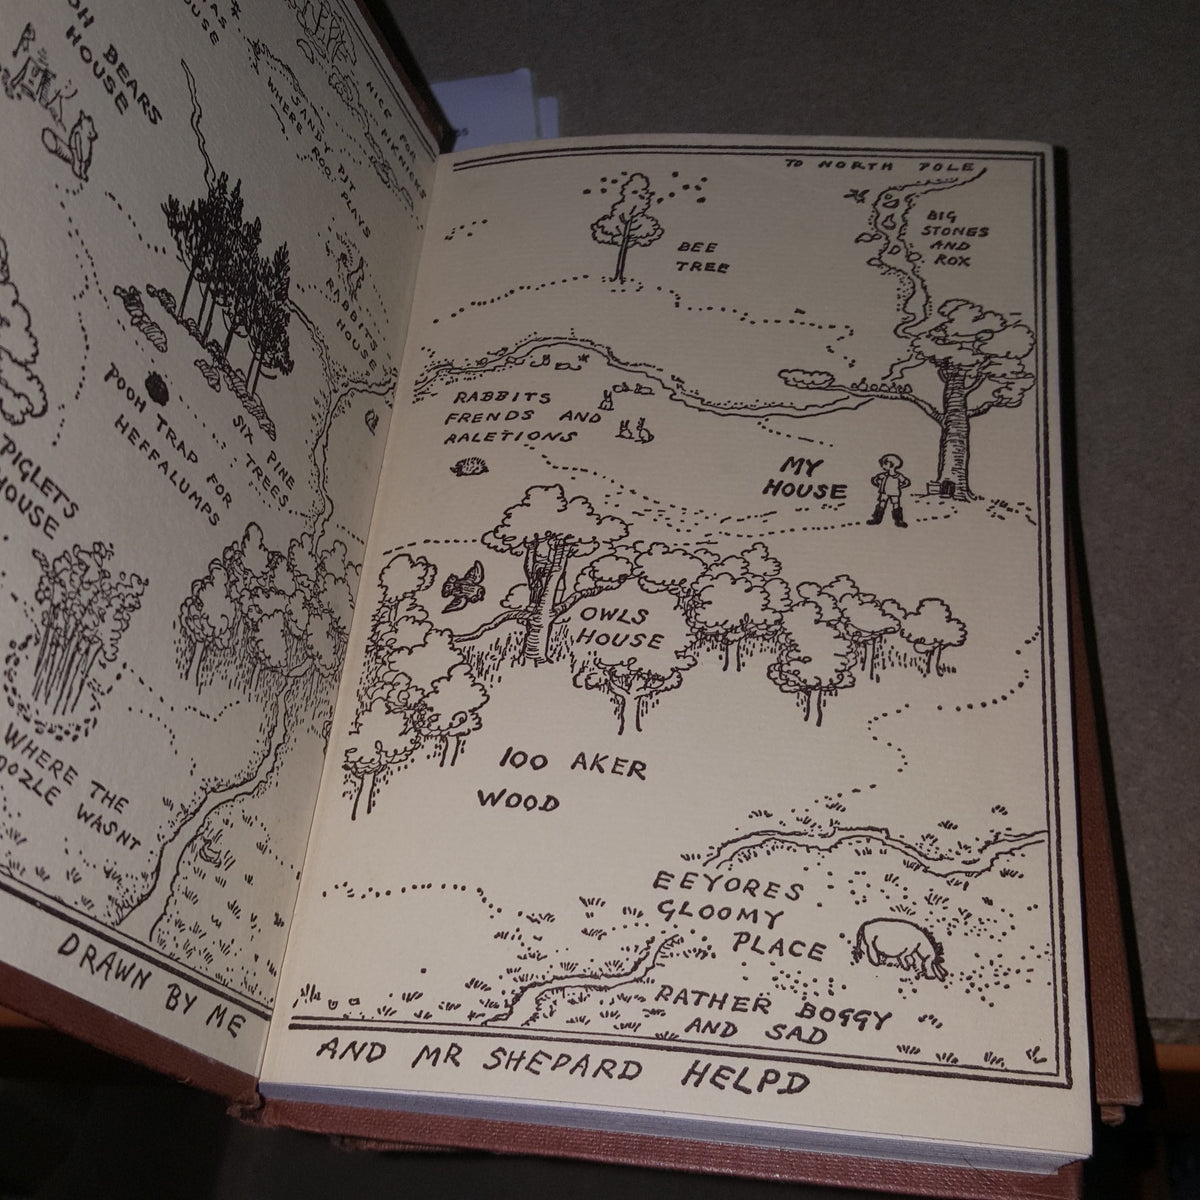 BEARS
HOUSE
NICE FOR
PIKNICKS
SANDY PIT
WHERE ROO PLAYS
RABBITS
HOUSE
POOH TRAP FOR
HEFFALUMPS
SIX PINE
TREES
PIGLETS
HOUSE
WHERE THE
WOOZLE WASNT
DRAWN BY ME
TO NORTH POLE
BIG
STONES
AND
ROX
BEE
TREE
RABBITS
FRENDS AND
RALETIONS
MY
HOUSE
OWLS
HOUSE
100 AKER
WOOD
EEYORES
GLOOMY
PLACE
RATHER BOGGY
AND SAD
AND MR SHEPARD HELPD